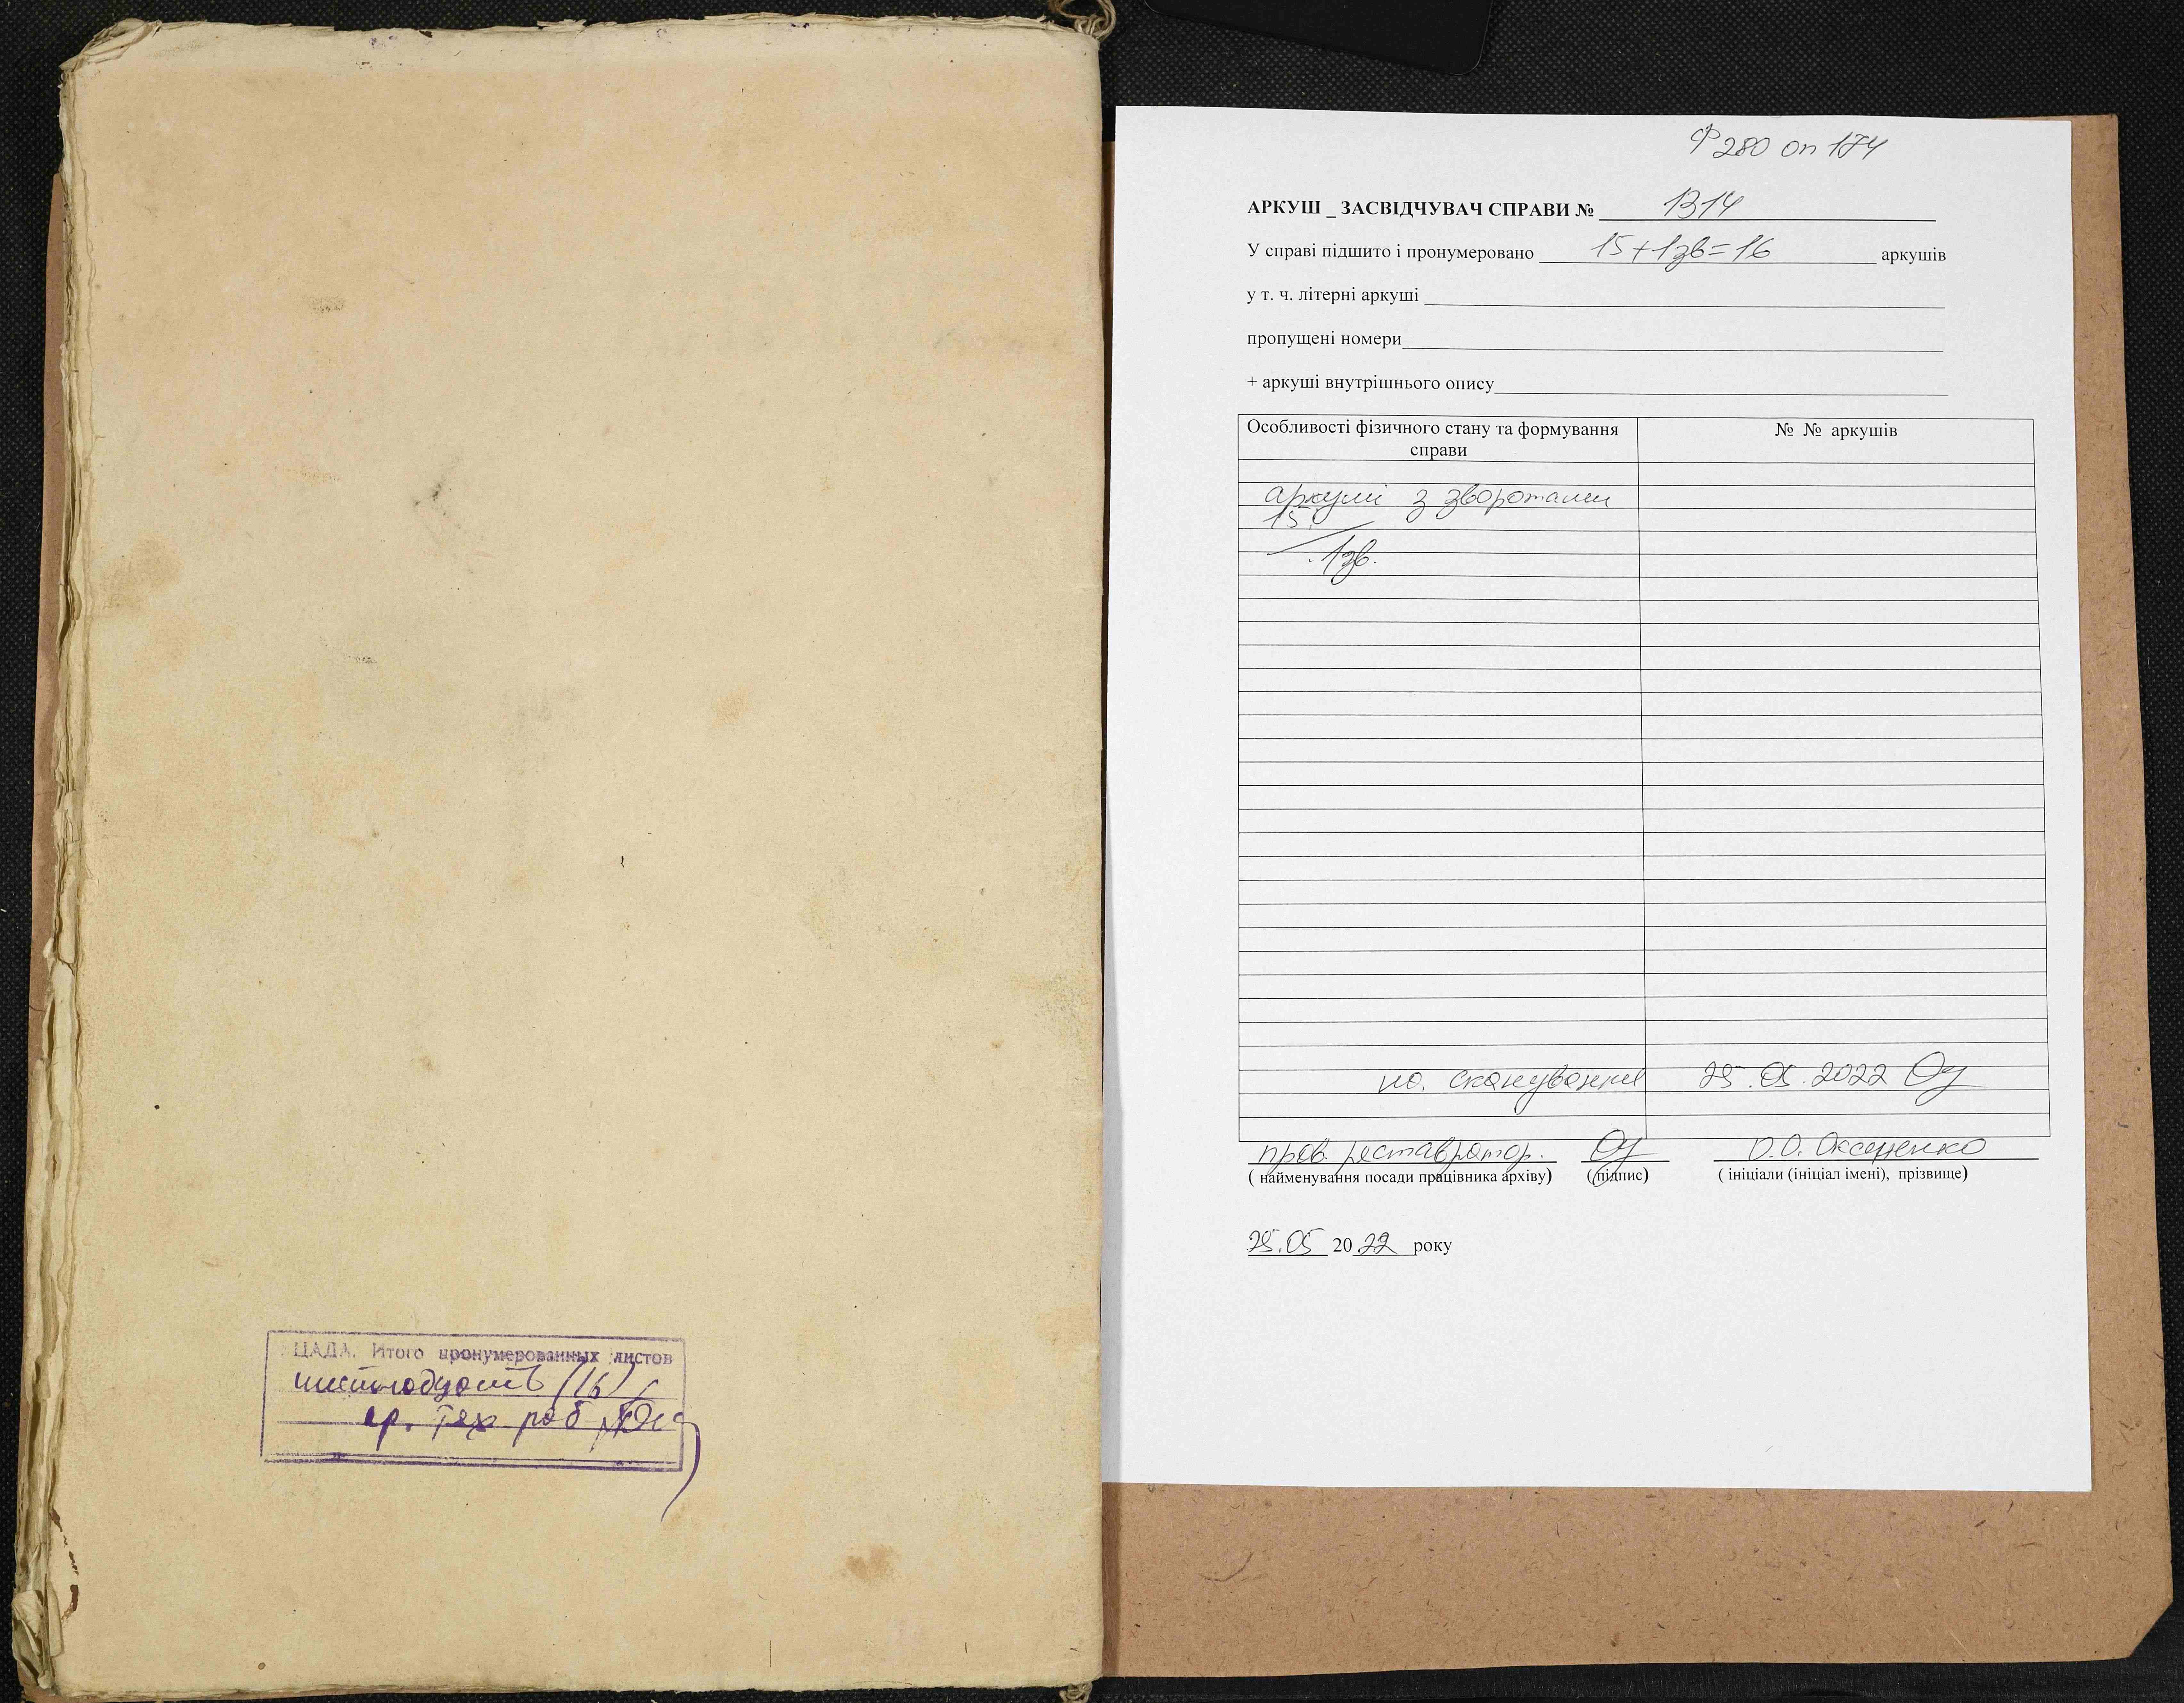 ЦАДА. Итого пронумерованных листов
шестнадцать (16)
ср. тех. раб
Ф 280 оп 174
АРКУШ _ ЗАСВІДЧУВАЧ СПРАВИ № 1314
У справі підшито і пронумеровано 15+1зв=16 аркушів
у т. ч. літерні аркуші
пропущені номери
+ аркуші внутрішнього опису
Особливості фізичного стану та формування справи
№ № аркушів
аркуші з зворотами
15.
1зв.
на. сканування 25.05.2022
пров. реставратор. О.О. Оксененко
( найменування посади працівника архіву) (підпис) ( ініціали (ініціал імені), прізвище)
25.05 2022 року